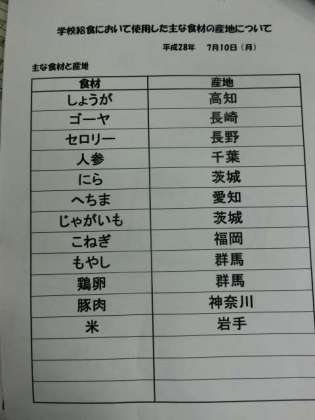 学校給食において使用した主な食材の産地について
平成28年 7月10日(月)
主な食材と産地
食材 産地
しょうが 高知
ゴーヤ 長崎
セロリー 長野
人参 千葉
にら 茨城
へちま 愛知
じゃがいも 茨城
こねぎ 福岡
もやし 群馬
鶏卵 群馬
豚肉 神奈川
米 岩手